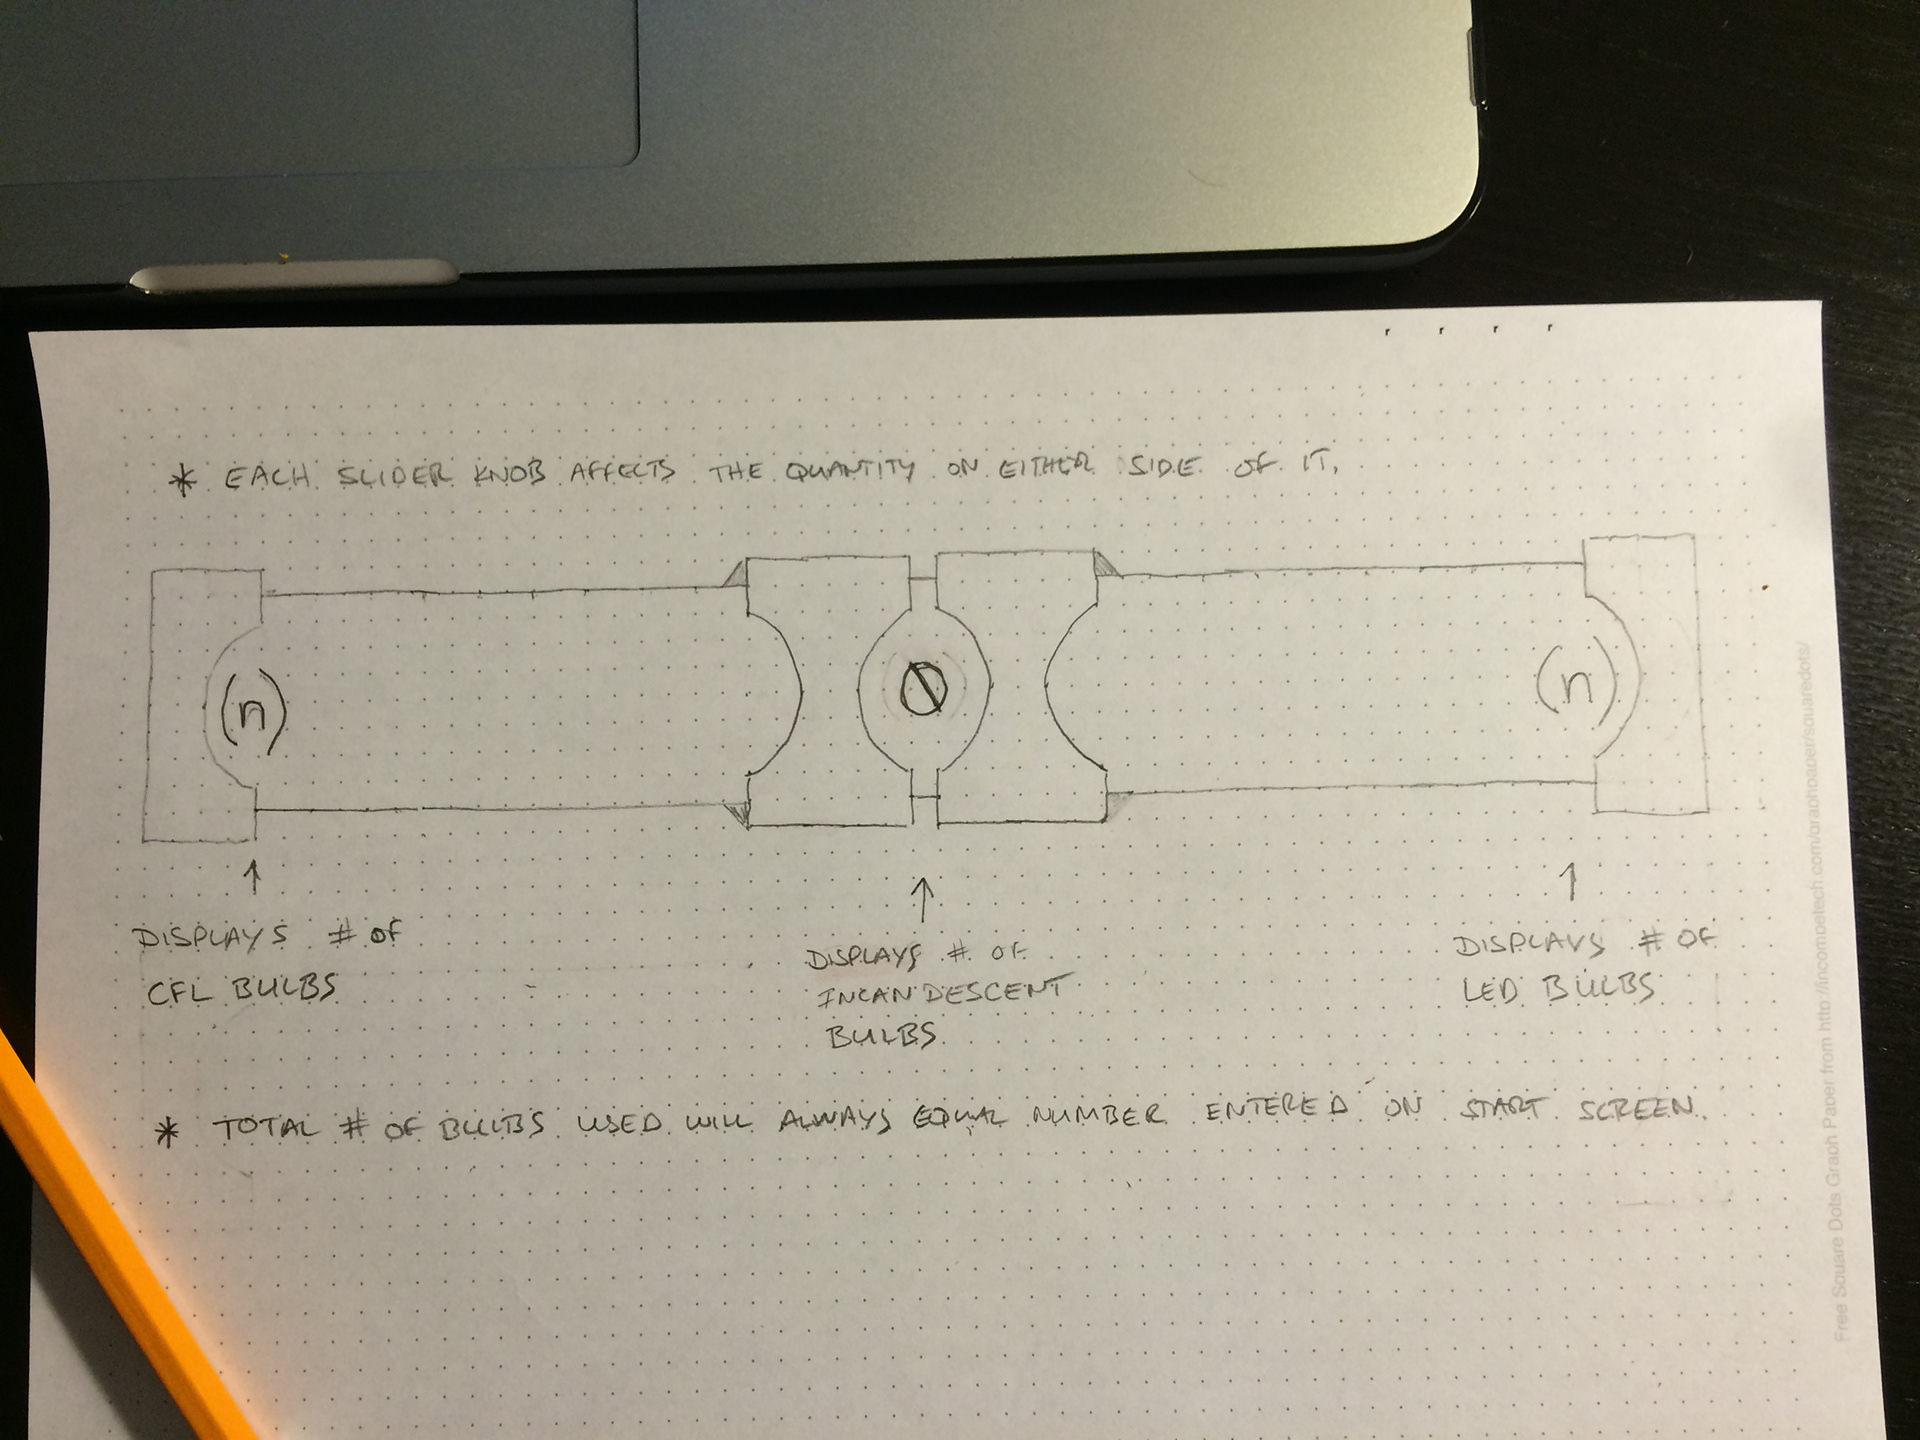 * EACH SLIDER KNOB AFFECTS THE QUANTITY ON EITHER SIDE OF IT.
(n)
0
(n)
DISPLAYS # OF
CFL BULBS
DISPLAYS # OF
INCANDESCENT
BULBS
DISPLAYS # OF
LED BULBS
* TOTAL # OF BULBS USED WILL ALWAYS EQUAL NUMBER ENTERED ON START SCREEN.
Free Square Dots Graph Paper from http://incompetech.com/graphpaper/squaredots/